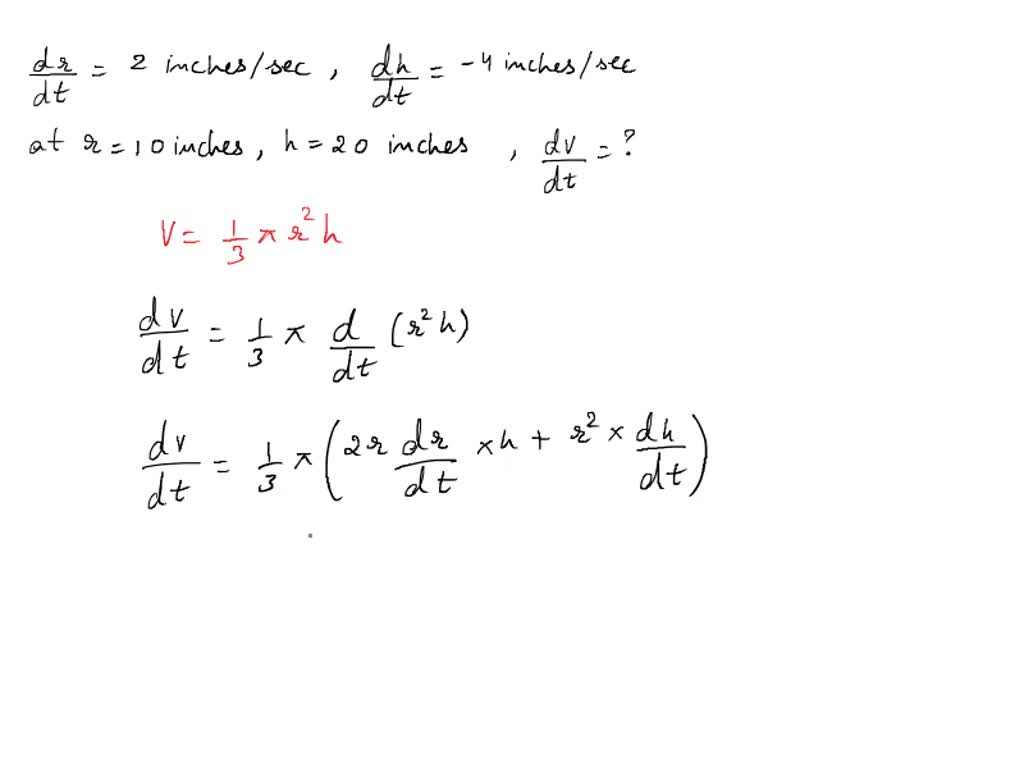 dr/dt = 2 inches/sec , dh/dt = -4 inches/sec
at r = 10 inches, h = 20 inches , dv/dt = ?
V = 1/3 π r² h
dv/dt = 1/3 π d/dt (r² h)
dv/dt = 1/3 π (2r dr/dt × h + r² × dh/dt)